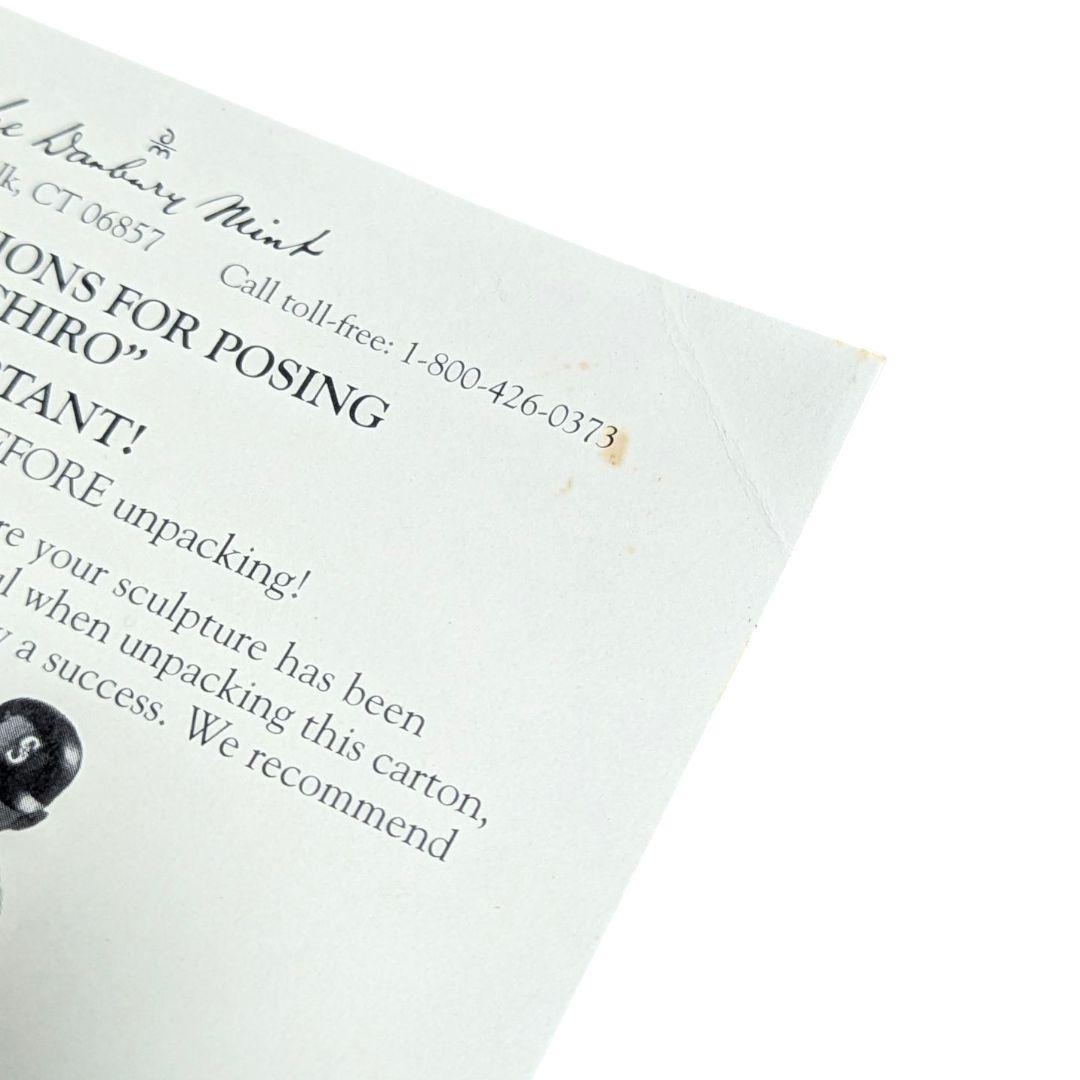 Danbury Mint
CT 06857 Call toll-free: 1-800-426-0373
IONS FOR POSING
CHIRO”
RTANT!
EFORE unpacking!
re your sculpture has been
ul when unpacking this carton,
y a success. We recommend
S